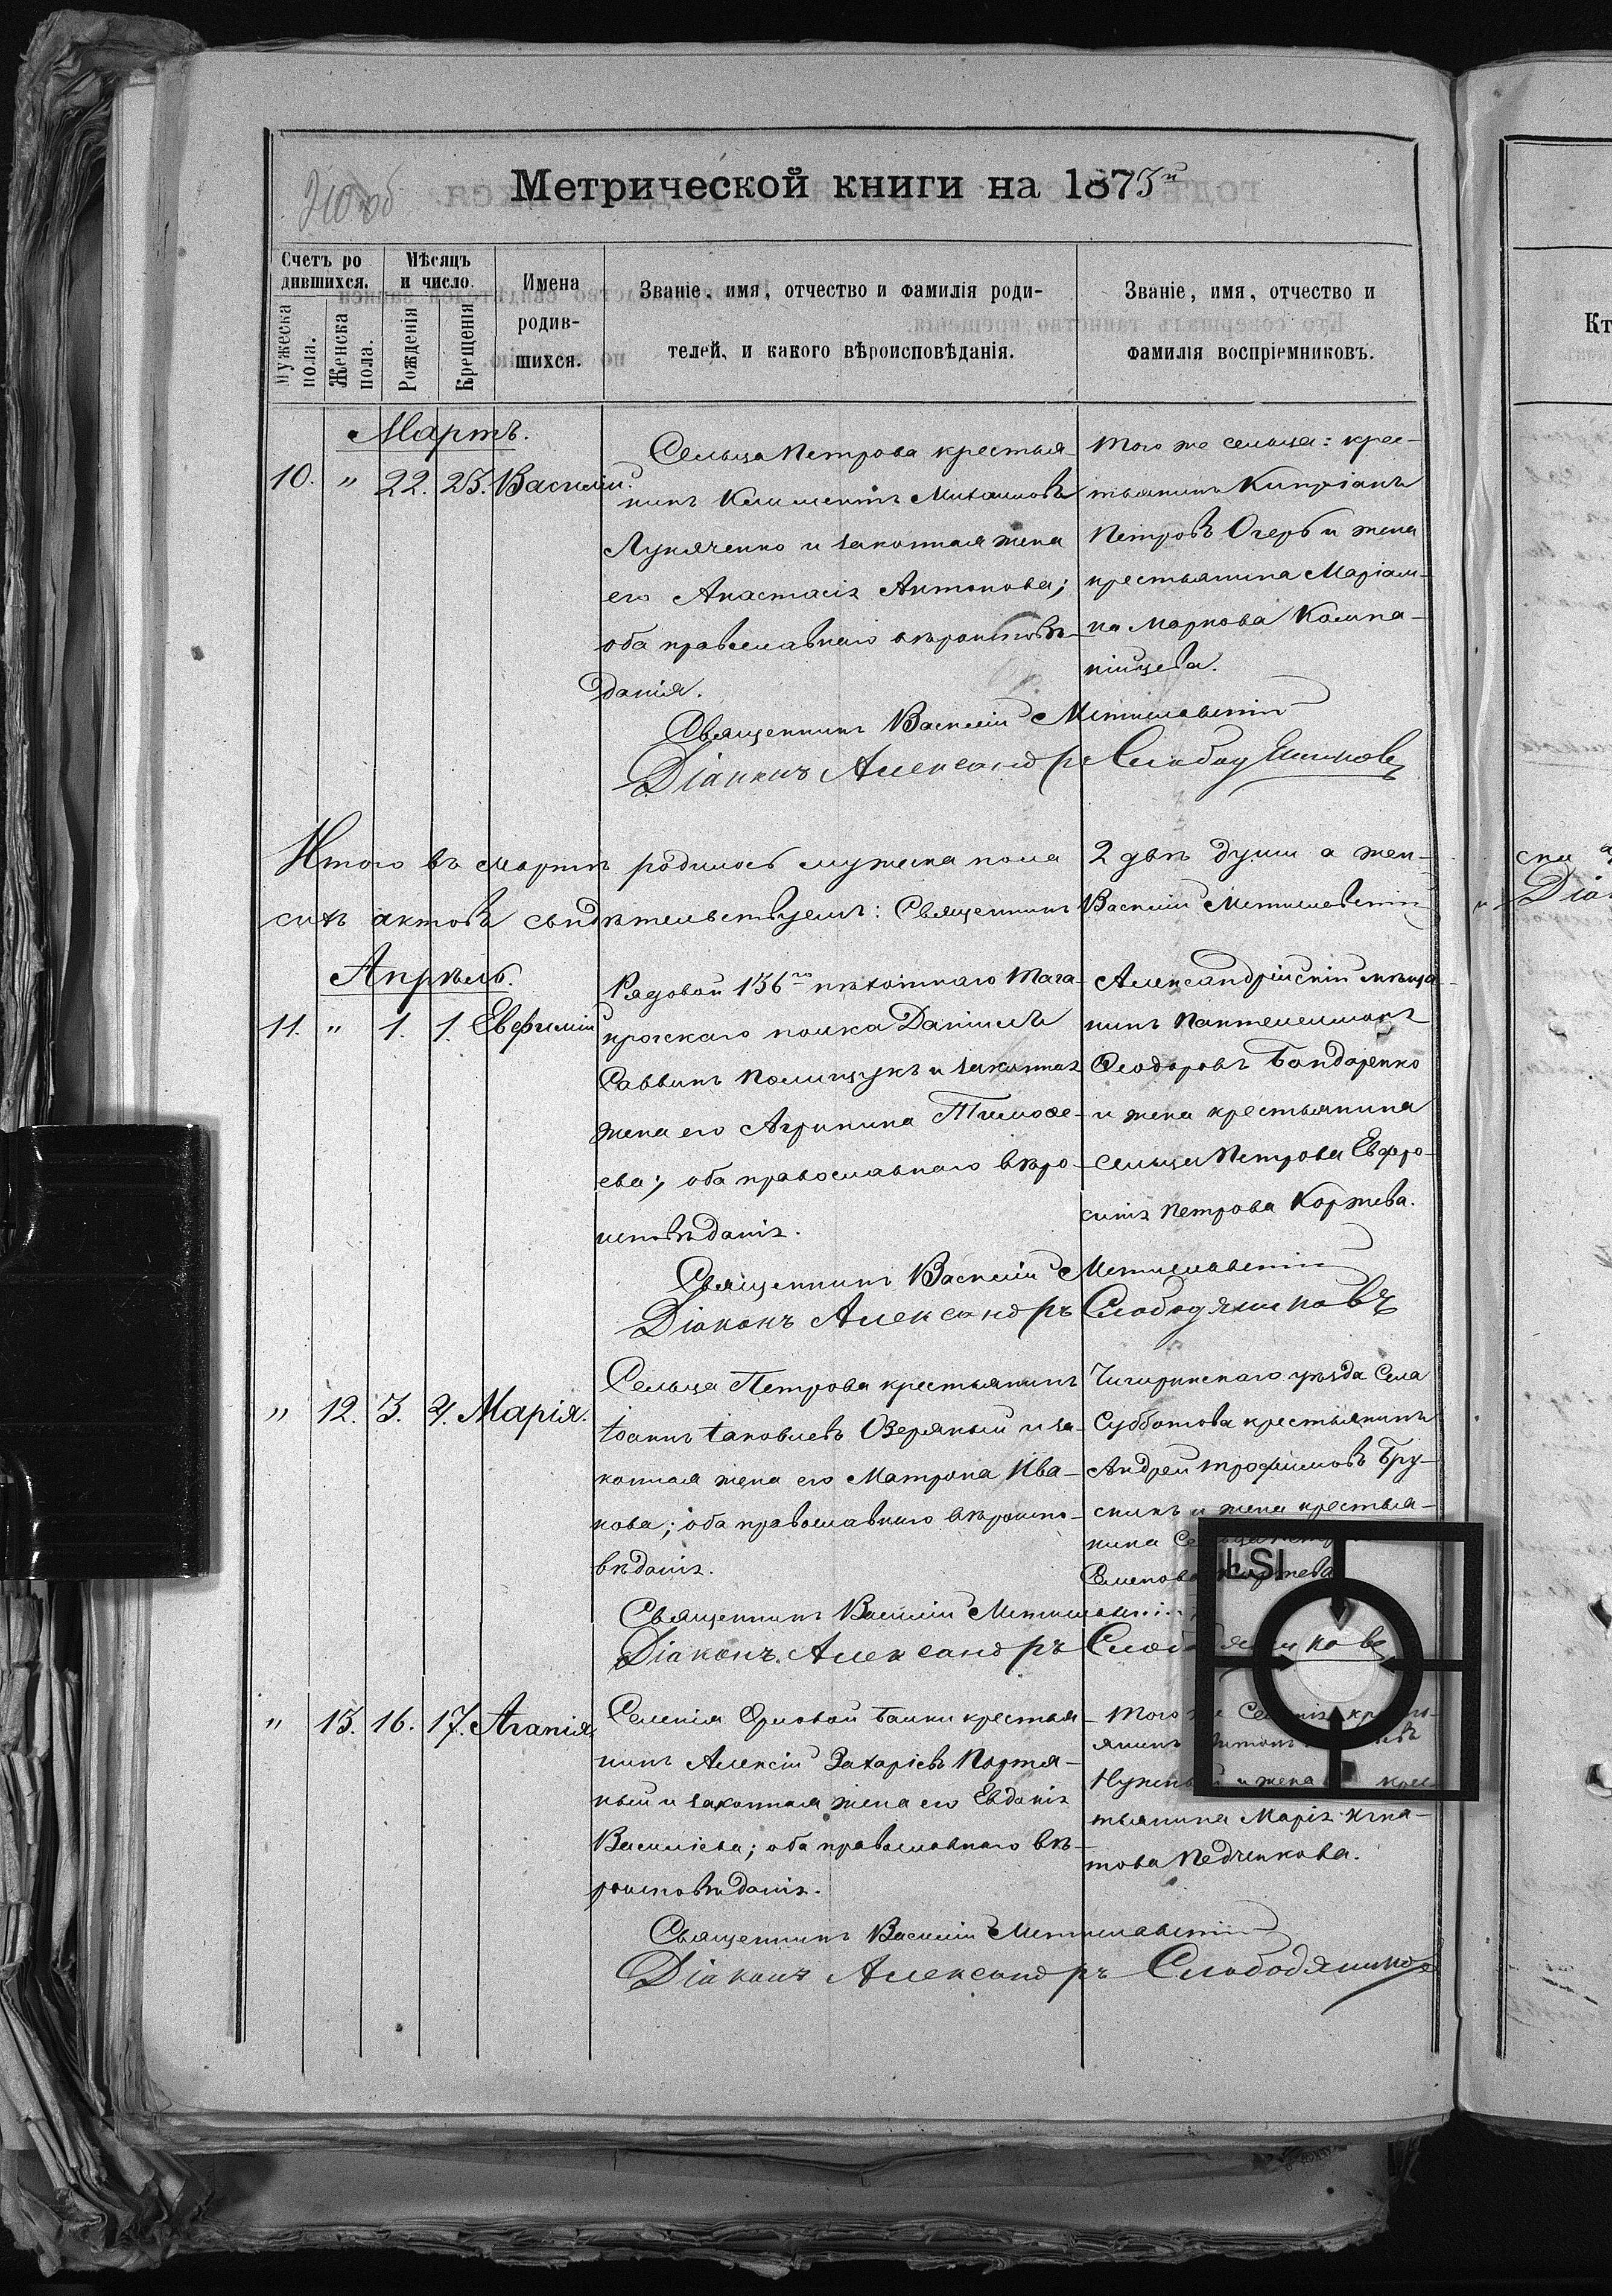 210 об
Метрической книги на 1873й
Счетъ ро
дившихся.
Мѣсяцъ
и число.
Имена
родив-
шихся.
Званіе, имя, отчество и фамилія роди-
телей, и какого вѣроисповѣданія.
Званіе, имя, отчество и
фамилія воспріемниковъ.
Мужеска
пола.
Женска
пола.
Рожденія
Крещенія
Мартъ.
10. " 22. 23. Василій.
Сельца Петрова крестья-
нинъ Климентъ Михаиловъ
Лукяченко и законная жена
его Анастасія Антонова;
оба православнаго вѣроисповѣ-
данія.
Того же сельца: крес-
тьянинъ Кипріанъ
Петровъ Очеръ и жена
крестьянина Маріам-
на Маркова Компа-
нійцева.
Священникъ Василій Мстиславскій
Діаконъ Александръ Слободяниковъ
Итого въ мартѣ родилось мужеска пола 2 двѣ души а жен-
сихъ актовъ свидѣтельствуемъ: Священникъ Василій Мстиславскій
Апрѣль.
11. " 1. 1. Евфимій
Рядовой 136го пѣхотнаго Тага-
нрогскаго полка Даніилъ
Саввинъ Полищукъ и законная
жена его Агрипина Тимофе-
ева; оба православнаго вѣро-
исповѣданія.
Александрійскій мѣща-
нинъ Пантелеимонъ
Ѳеодоровъ Бондаренко
и жена крестьянина
сельца Петрова Евфро-
синія Петрова Коржева.
Священникъ Василій Мстиславскій
Діаконъ Александръ Слободяниковъ
" 12. 3. 4. Марія.
Сельца Петрова крестьянинъ
Іоаннъ Іаковлевъ Озеряный и за-
конная жена его Матрона Ива-
нова; оба православнаго вѣроиспо-
вѣданія.
Чигиринскаго уѣзда Села
Субботова крестьянинъ
Андрей Трофимовъ Бру-
сникъ и жена крестья-
нина
Семенова Коржева
LSI
Священникъ Василій Мстиславскій
Діаконъ Александръ Слободяниковъ
" 13. 16. 17. Агапія.
Селенія Орловой Балки крестья-
нинъ Алексій Захаріевъ Портя-
ный и законная жена его Евдокія
Василіева; оба православнаго вѣ-
роисповѣданія.
Того же Селенія крест-
янинъ
и жена крес-
тьянина Марія Игна-
това Педченкова.
Священникъ Василій Мстиславскій
Діаконъ Александръ Слободяниковъ